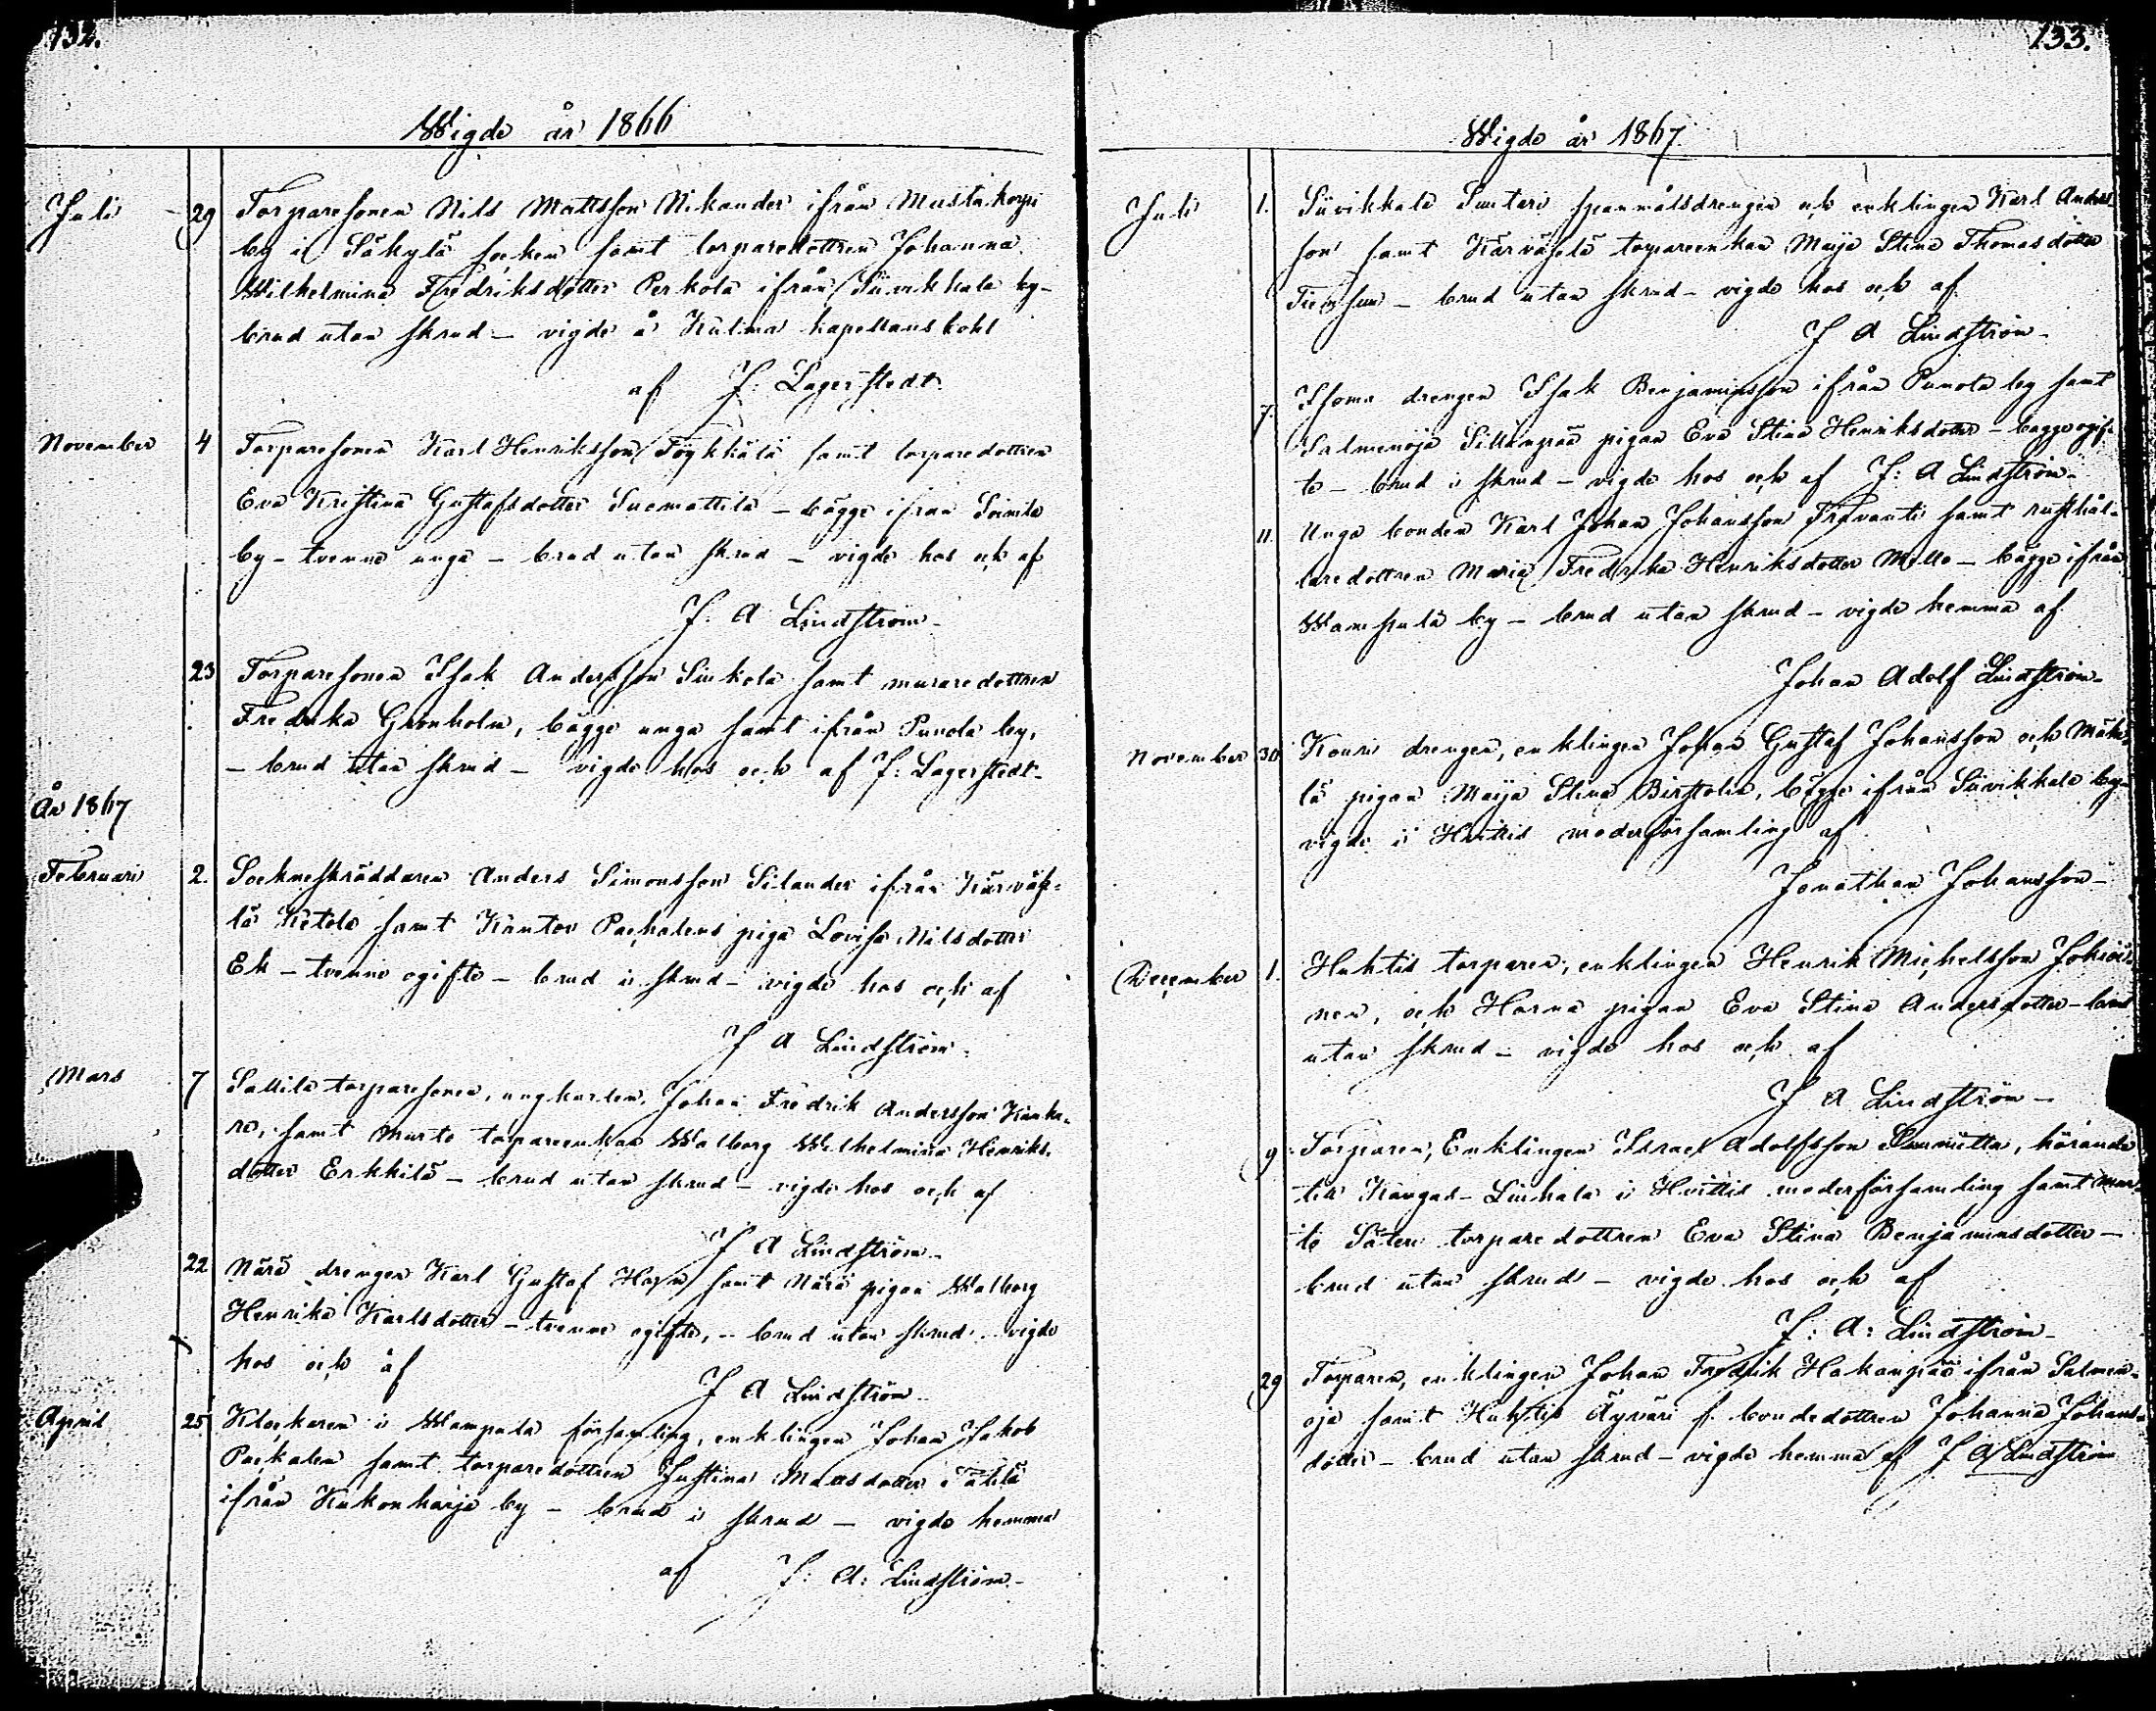 132.
Wigde år 1866
Juli 29 Torparesonen Nils Mattsson Nikander ifrån Mustakorpi
by i Säkylä socken samt torparedottren Johanna
Wilhelmina Fredriksdotter Perkola ifrån Suvikkala by-
brud utan skrud - vigde å Kulma kapellansbohl
af J. Lagerstedt.
November 4 Torparesonen Karl Henriksson Töykkälä samt torparedottren
Eva Kristina Gustafsdotter Suemattila - bägge ifrån Soinila
by - tvenne unga - brud utan skrud - vigde hos och af
J. A Lindström -
23 Torparesonen Isak Andersson Sinkola samt muraredottren
Fredrika Grönholm, bägge unga samt ifrån Punola by,
- brud utan skrud - vigde hos och af J: Lagerstedt -
År 1867
Februari 2. Sockneskräddaren Anders Simonsson Silander ifrån Kärväse-
lä Ketola samt Kantor Packalens piga Lovisa Nilsdotter
Ek - tvenne ogifte - brud i skrud - vigde hos och af
J A Lindström -
Mars 7 Sallila torparesonen, ungkarlen, Johan Fredrik Andersson Kanka-
re, samt Murto torpareenkan Walborg Wilhelmina Henriks-
dotter Erkkilä - brud utan skrud - vigde hos och af
J A Lindström -
22 Närä drengen Karl Gustaf samt Närä pigan Walborg
Henrika Karlsdotter - tvenne ogifte, - brud utan skrud - vigde
hos och af
J A Lindström
April 25 Klockaren i Wampula församling, enklingen Johan Jakob
Packalen samt torparedottren Justina Mattsdotter Takla
ifrån Kukonharja by - brud i skrud - vigde hemma
af J: A: Lindström -
133.
Wigde år 1867.
Juli 1. Suvikkala Suutari spanmålsdrengen och enklingen Karl Anders-
son samt Kärväselä torpareenkan Maija Stina Thomasdotter
- brud utan skrud - vigde hos och af
J A Lindström -
7. Isoma drengen Isak Benjaminsson ifrån Punola by samt
Salmenoja Sillanpää pigan Eva Stina Henriksdotter - bägge ogif-
te - brud i skrud - vigde hos och af J: A Lindström -
11. Unga bonden Karl Johan Johansson samt rusthål-
laredottren Maria Fredrika Henriksdotter Mello - bägge ifrån
Wampula by - brud utan skrud - vigde hemma af
Johan Adolf Lindström -
November 30 Kouvo drengen, enklingen Johan Gustaf Johansson och Mäke-
lä pigan Maija Stina , bägge ifrån Suvikkala by -
vigde i Huittis moderförsamling af
Jonathan Johansson -
December 1. Huhtis torparen, enklingen Henrik Michelsson Jokioi-
nen, och Horna pigan Eva Stina Andersdotter - brud
utan skrud - vigde hos och af
J A Lindström -
9 Torparen, Enklingen Israel Adolfsson , hörande
till Kangas-Liuhala i Huittis moderförsamling samt Mur-
to Säteri torparedottren Eva Stina Benjaminsdotter -
brud utan skrud - vigde hos och af
J: A: Lindström -
29 Torparen, enklingen Johan Fredrik Hakanpää ifrån Salmen-
oja samt Huhtis Äyräri f. bondedottren Johanna Johans-
dotter - brud utan skrud - vigde hemma af J A Lindström